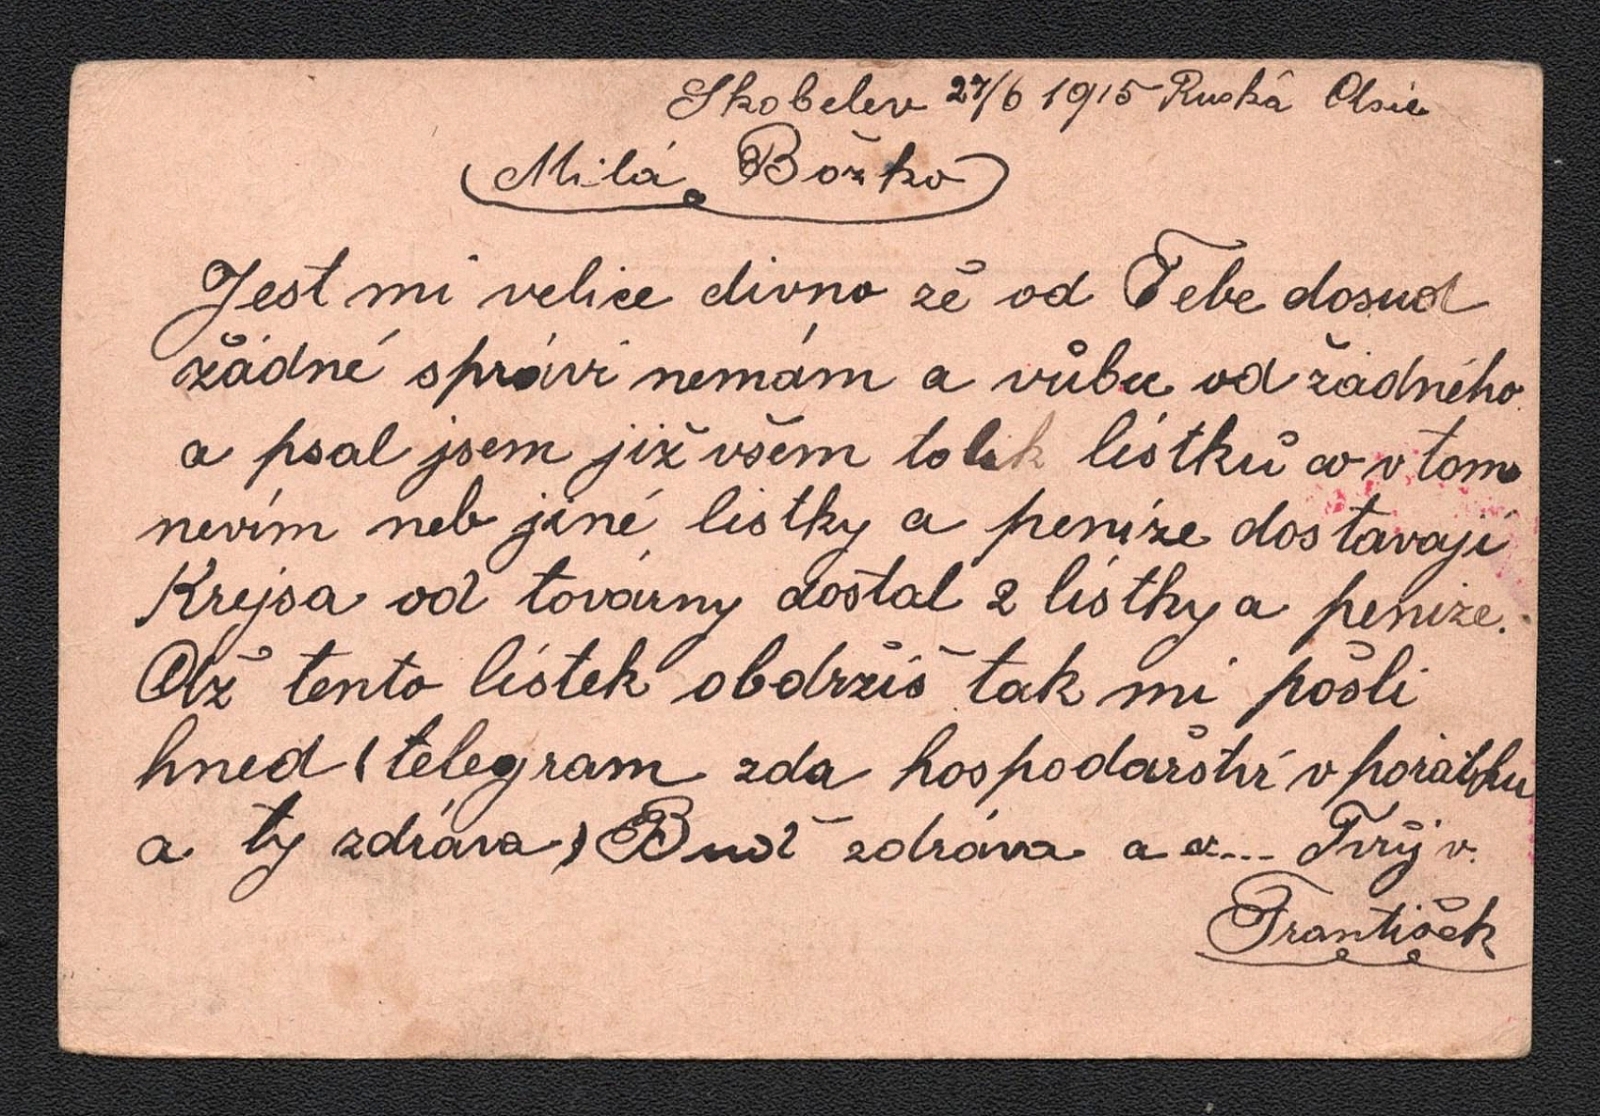 Skobelev 27/6 1915 Ruská Asie
Milá Božko
Jest mi velice divno že od Tebe dosud
žádné správi nemám a vůbec od žádného
a psal jsem již všem tolik lístků co v tom
nevím neb jiné listky a peníze dostavají
Krejsa od továrny dostal 2 lístky a penize.
Až tento lístek obdržíš tak mi pošli
hned (telegram zda hospodářství v pořádku
a ty zdráva) Buď zdráva a a... Tvůj v.
František